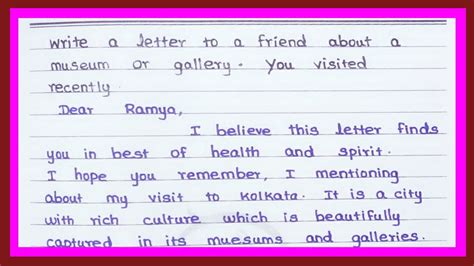 write a letter to a friend about a
museum or gallery. You visited
recently
Dear Ramya,
I believe this letter finds
you in best of health and spirit.
I hope you remember, I mentioning
about my visit to Kolkata. It is a city
with rich culture which is beautifully
captured in its muesums and galleries.